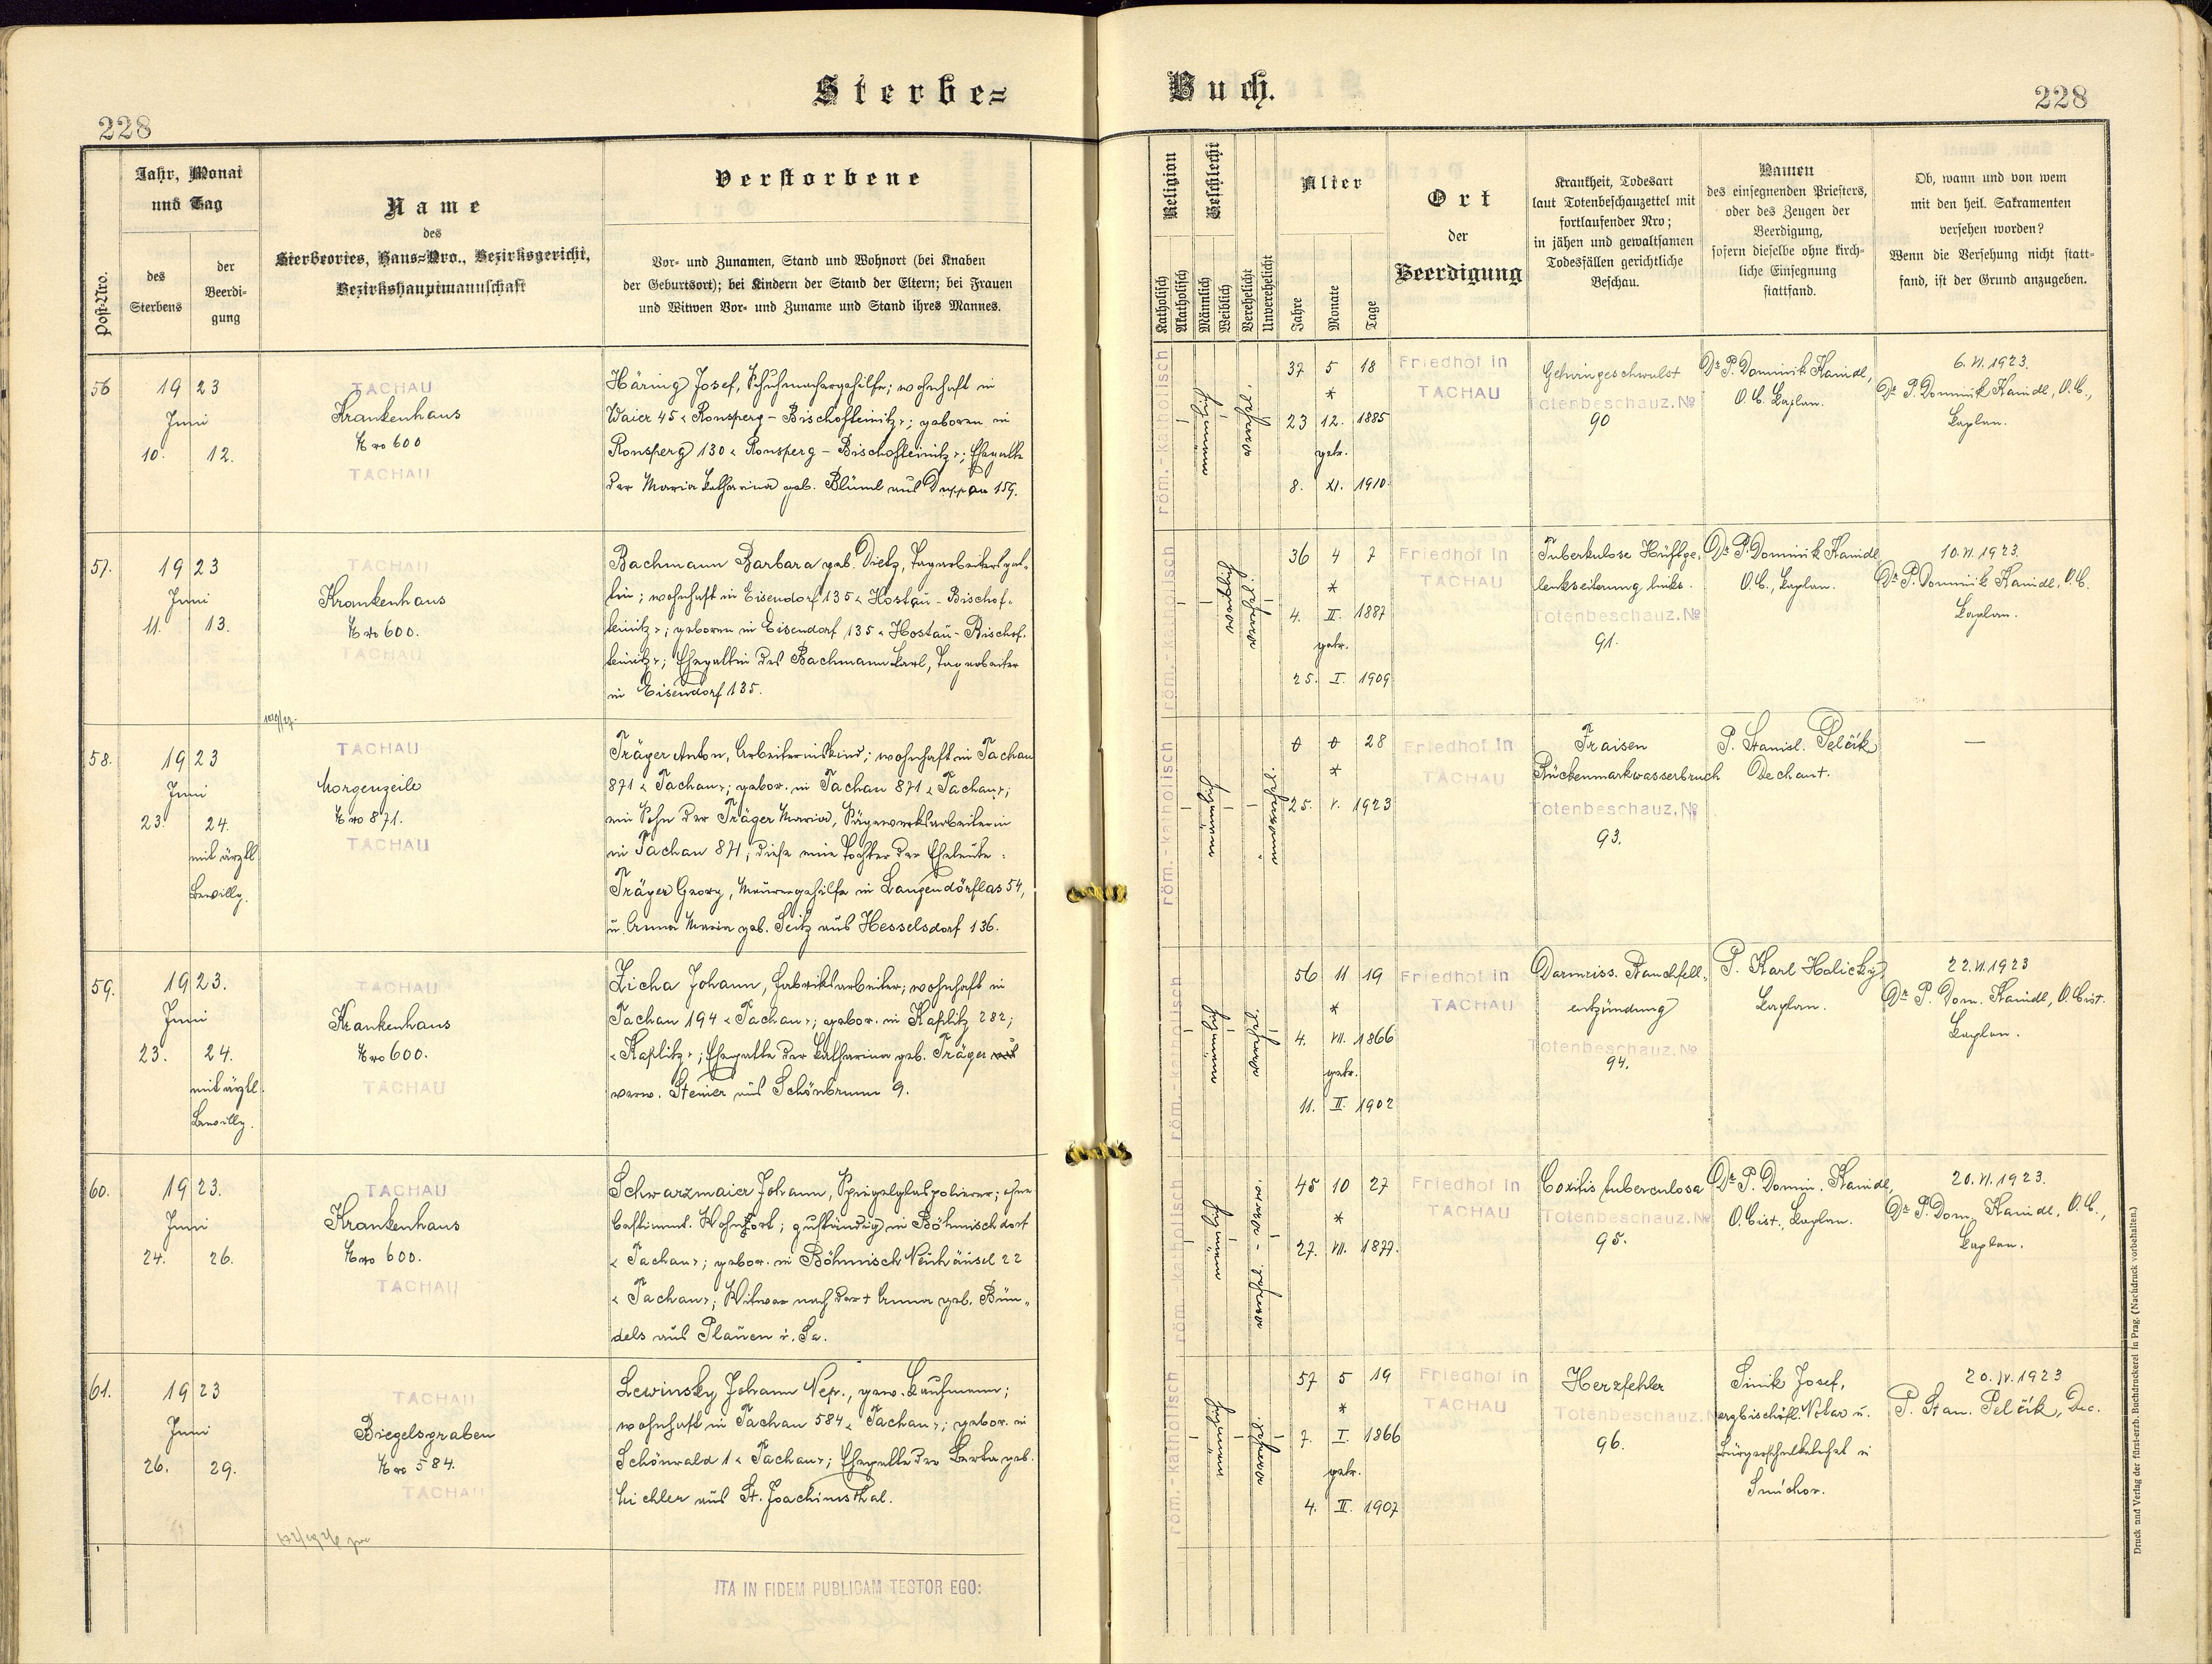 Sterbe=
Buch.
228
228
Jahr, Monat
und Tag
Post-Nro.
des
Sterbens
der
Beerdi-
gung
Name
des
Sterbeortes, Haus=Nro., Bezirksgericht,
Bezirkshauptmannschaft
Verstorbene
Vor- und Zunamen, Stand und Wohnort (bei Knaben
der Geburtsort); bei Kindern der Stand der Eltern; bei Frauen
und Witwen Vor- und Zuname und Stand ihres Mannes.
Religion
Geschlecht
Katholisch
Akatholisch
Männlich
Weiblich
Verehelicht
Unverehelicht
Alter
Jahre
Monate
Tage
Ort
der
Beerdigung
Krankheit, Todesart
laut Totenbeschauzettel mit
fortlaufender Nro;
in jähen und gewaltsamen
Todesfällen gerichtliche
Beschau.
Namen
des einsegnenden Priesters,
oder des Zeugen der
Beerdigung,
sofern dieselbe ohne kirch-
liche Einsegnung
stattfand.
Ob, wann und von wem
mit den heil. Sakramenten
versehen worden?
Wenn die Versehung nicht statt-
fand, ist der Grund anzugeben.
56
1923
Juni
10. 12.
TACHAU
Krankenhaus
Nro 600
TACHAU
Häring Josef, Schuhmachergehilfe; wohnhaft in
Waier 45 < Ronsperg - Bischofteinitz >; geboren in
Ronsperg 130 < Ronsperg - Bischofteinitz >; Ehegatte
der Maria Katharina geb. Blüml aus Duppau 159.
röm.-katholisch
männl.
verehel.
37 5 18
*
23 12. 1885
getr.
8. XI. 1910
Friedhof in
TACHAU
Gehirngeschwulst
Totenbeschauz. No
90
Dr P. Dominik Kaindl,
O. C. Kaplan.
6. VI. 1923.
Dr P. Dominik Kaindl, O. C.,
Kaplan.
57.
1923
Juni
11. 13.
TACHAU
Krankenhaus
Nro 600.
TACHAU
Bachmann Barbara geb. Dietz, Tagarbeitersgat-
tin; wohnhaft in Eisendorf 135 < Hostau - Bischof-
teinitz >; geboren in Eisendorf 135 < Hostau - Bischof-
teinitz >; Ehegattin des Bachmann Karl, Tagarbeiter
in Eisendorf 135.
röm.-katholisch
36 4 7
*
4. II. 1887
getr.
25. I. 1909
Friedhof in
TACHAU
Tuberkulose Hüftge-
lenkseiterung links.
Totenbeschauz. No
91.
Dr P. Dominik Kaindl
O. C., Kaplan.
10. VI. 1923.
Dr P. Dominik Kaindl, O. C.
Kaplan.
58.
1923
Juni
23. 24.
mit ärztl.
Bewillg.
TACHAU
Morgenzeile
Nro 871.
TACHAU
Träger Anton, Arbeiterinskind; wohnhaft in Tachau
871 < Tachau >; gebor. in Tachau 871 < Tachau >;
ein Sohn der Träger Maria, Sägewerksarbeiterin
in Tachau 871; diese eine Tochter der Eheleute:
Träger Georg, Maurergehilfe in Langendörflas 54,
u. Anna Maria geb. Seitz aus Hesselsdorf 136.
röm.-katholisch
männl.
0 0 28
*
25. V. 1923
Friedhof in
TACHAU
Fraisen
Rückenmarkwasserbruch
Totenbeschauz. No
93.
P. Stanisl. Pelčík
Dechant.
—
59.
1923.
Juni
23. 24.
mit ärztl.
Bewillg.
TACHAU
Krankenhaus
Nro 600.
TACHAU
Zicha Johann, Fabriksarbeiter; wohnhaft in
Tachau 194 < Tachau >; gebor. in Kaplitz 282;
< Kaplitz >; Ehegatte der Katharina geb. Träger aus
verw. Steiner aus Schönbrunn 9.
röm.-katholisch
männl.
verehel.
56 11 19
*
4. VII. 1866
getr.
11. II. 1902
Friedhof in
TACHAU
Darmriss. Bauchfell-
entzündung
Totenbeschauz. No
94.
P. Karl Holický,
Kaplan.
22. VI. 1923
Dr P. Dom. Kaindl, O. Cist.
Kaplan.
60.
1923.
Juni
24. 26.
TACHAU
Krankenhaus
Nro 600.
TACHAU
Schwarzmaier Johann, Spiegelglaspolierer; ohne
bestimmt. Wohnort; zuständig in Böhmischdorf
< Tachau >; gebor. in Böhmisch Neuhäusel 22
< Tachau >; Witwer nach der + Anna geb. Bün-
dels aus Plauen i. Sa.
röm.-katholisch
männl.
45 10 27
*
27. VII. 1877.
Friedhof in
TACHAU
Coxitis tuberculosa
Totenbeschauz. No
95.
Dr P. Domin. Kaindl,
O. Cist., Kaplan.
20. VI. 1923.
Dr P. Dom. Kaindl, O. C.,
Kaplan.
61.
1923
Juni
26. 29.
TACHAU
Biegelsgraben
Nro 584.
TACHAU
Lewinsky Johann Nep., gew. Kaufmann;
wohnhaft in Tachau 584 < Tachau >; gebor. in
Schönwald 1 < Tachau >; Ehegatte der Berta geb.
aus St. Joachimsthal.
röm.-katholisch
männl.
verehel.
57 5 19
*
7. I. 1866
getr.
4. II. 1907
Friedhof in
TACHAU
Herzfehler
Totenbeschauz. No
96.
Josef,
erzbischöfl. Notar u.
Bürgerschulkatechet in
Smíchov.
20. IV. 1923
P. Stan. Pelčík, Dec.
ITA IN FIDEM PUBLICAM TESTOR EGO:
Druck und Verlag der fürst-erzb. Buchdruckerei in Prag. (Nachdruck vorbehalten.)